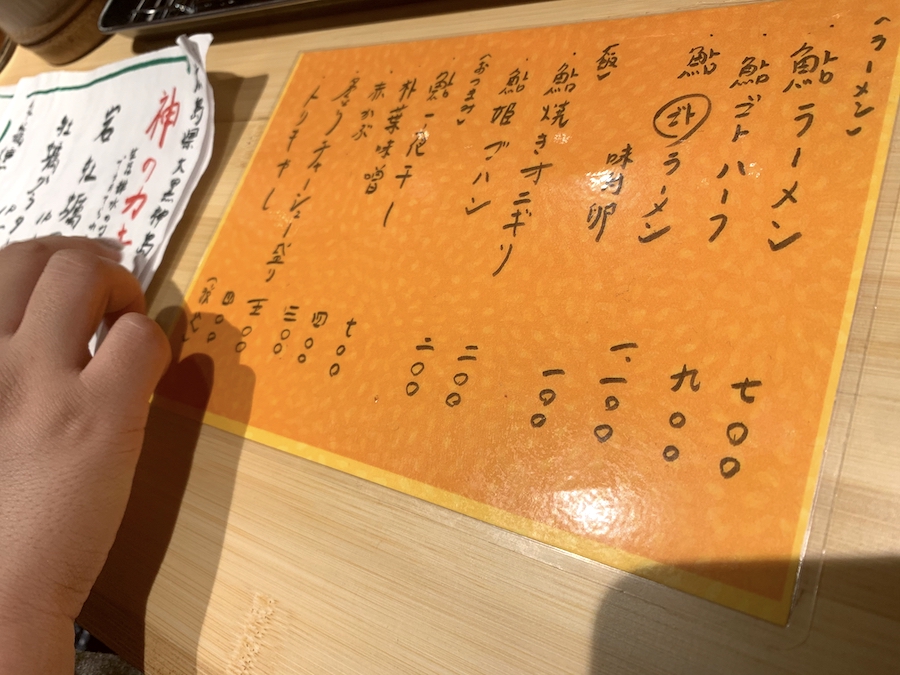 (ラーメン)
・鮎ラーメン 七〇〇
・鮎ゴトハーフ 九〇〇
・鮎(ゴト)ラーメン 一、一〇〇
味付卵 一〇〇
(飯)
・鮎焼きオニギリ 二〇〇
・鮎姫ゴハン 二〇〇
(おつまみ)
・鮎一夜干し 七〇〇
・朴葉味噌 四〇〇
・赤かぶ 三〇〇
チャーシュー盛り 五〇〇
・トリモヤし 四〇〇
島県大黒神島
神の力
岩牡蠣
牡蠣グラ